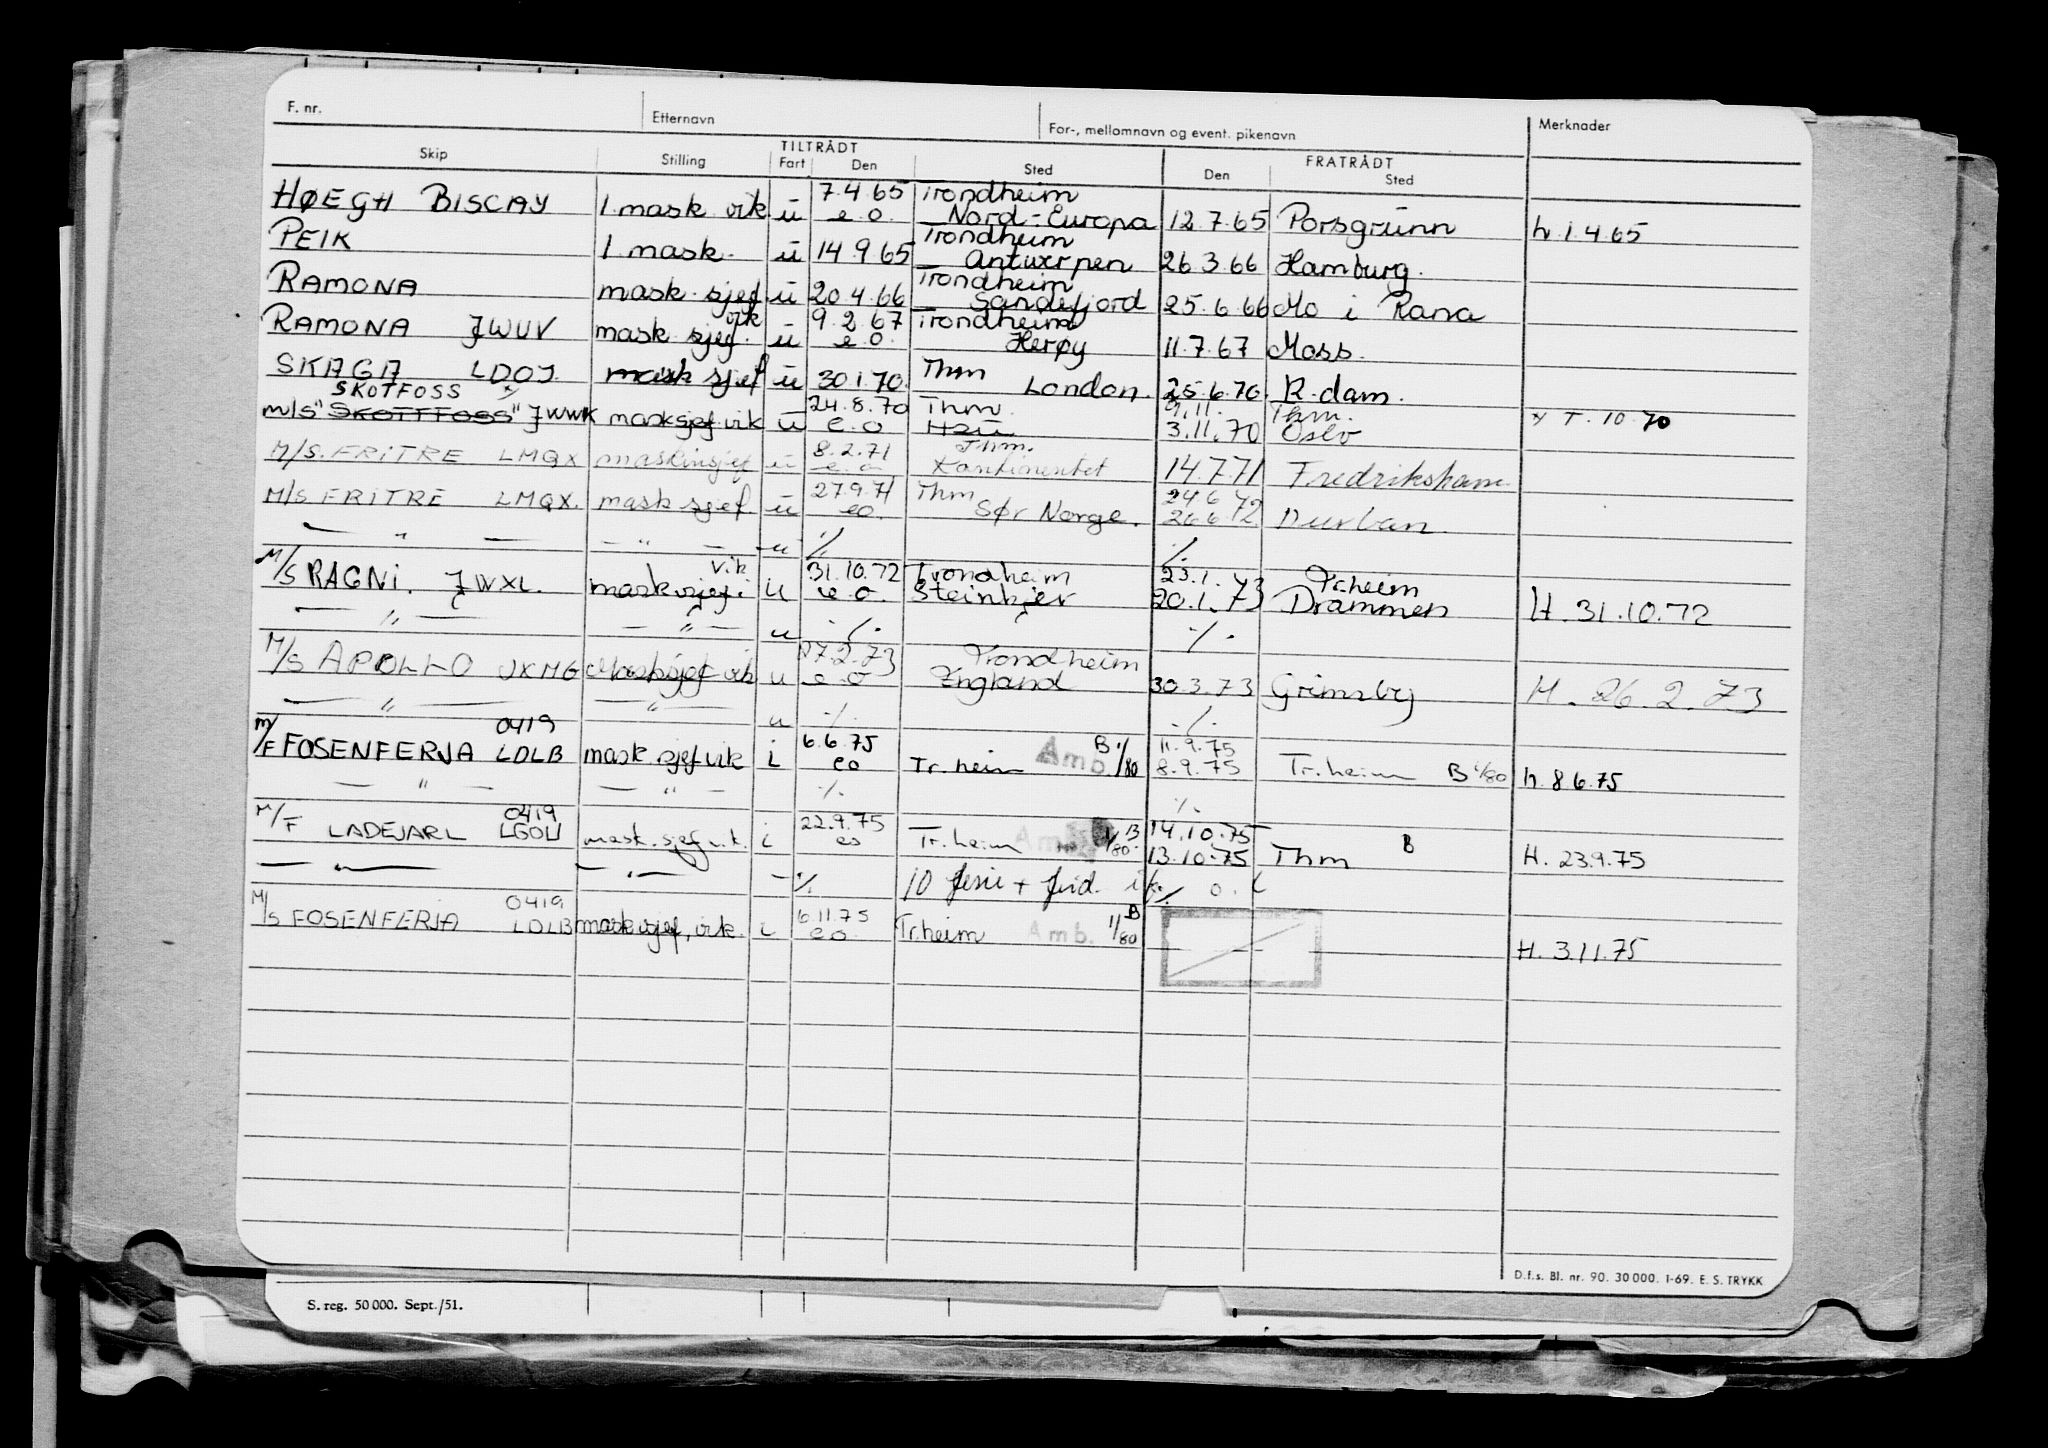 F. nr. Etternavn For-, mellomnavn og event. pikenavn Merknader
TILTRÅDT FRATRÅDT
Skip Stilling Fart Den Sted Den Sted
7.4.65 Trondheim
HØEGH BISCAY 1. mask vik ü e.o. Nord-Europa 12.7.65 Porsgrünn h.1.4.65
Trondheim
PEIK 1 mask. ü 14.9.65 Antwerpen 26.3.66 Hamburg.
Trondheim
RAMONA mask. sjef ü 20.4.66 Sandefjord 25.6.66 Mo i Rana
vik 9.2.67 Trondheim
RAMONA JWUV mask sjef. ü e.o. Herøy 11.7.67 Moss.
SKAGA LDOJ. mask sjef ü 30.1.70. Thm London. 25.6.70. R.dam.
SKOTFOSS 24.8.70 Thm. 9.11. Thm.
m/s "SKOTTFOSS" JWWK masksjef vik ü e.o 3.11.70 Oslo T.10.70
8.2.71 Thm.
M/S. FRITRE LMQX maskinsjef ü e.o. Kontinentet 14.7.71 Fredrikshamn
27.9.71 Thm 24.6.72
M/S FRITRE LMQX. mask sjef. ü eo. Sør Norge. 26.6.72 Durban.
— " — — " — u ·/. ·/.
vik 31.10.72 Trondheim 23.1.73 Tr.heim
M/S RAGNI. JWXL. masksjef. u e.o. Steinkjer 20.1.73 Drammen H. 31.10.72
— " — — " — u ·/. ·/.
27.2.73 Trondheim
M/S APOLLO JXMG Masksjef vik u e.o England 30.3.73 Grimsby H. 26.2.73
— " — — " — u ·/. ·/.
0419 6.6.75 B 1/80 11.9.75
M/F FOSENFERJA LDLB mask. sjef vik i eo Tr.heim Amb. 8.9.75 Tr.heim B 1/80 h. 8.6.75
— " — — " — ·/. ·/.
0419 22.9.75 B 14.10.75
M/F LADEJARL LGOU mask. sjef vik. i eo Tr.heim Amb. 1/80. 13.10.75 Thm B H. 23.9.75
— " — — " — ·/. 10 ferie + frid. ·/.
0419 6.11.75 B
M/S FOSENFERJA LDLB mask sjef, vik. i eo Tr.heim Amb. 1/80 H. 3.11.75
D.f.s. Bl. nr. 90. 30 000. 1-69. E. S. TRYKK
S. reg. 50 000. Sept./51.